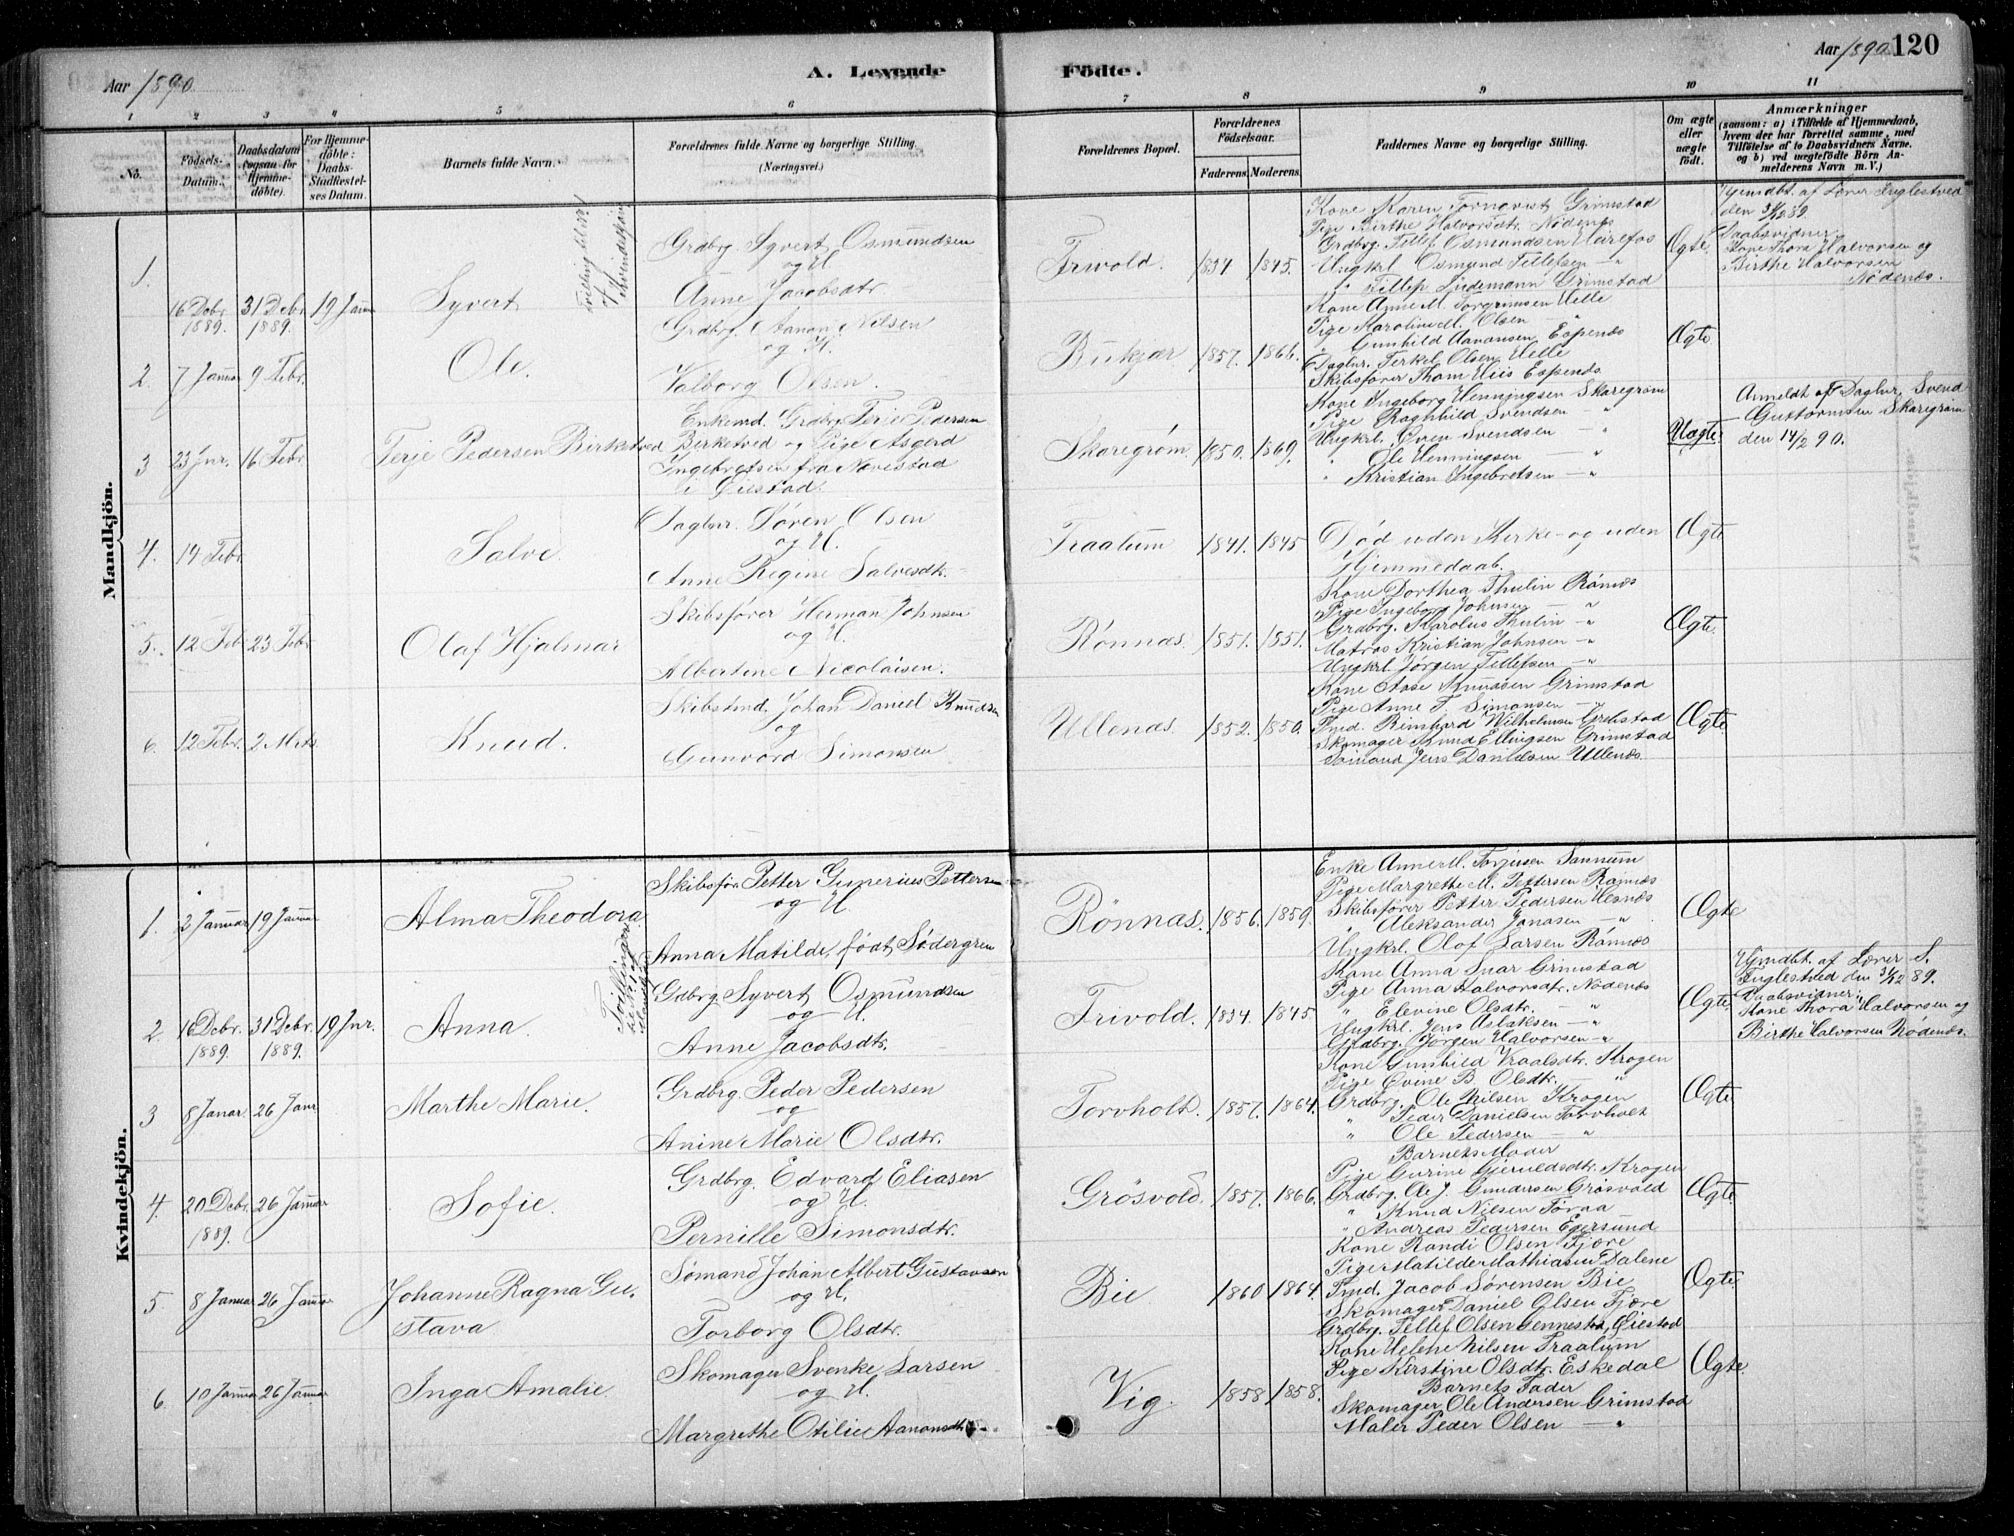 Aar 1890
A. Levende Födte.
Aar 1890 120
1 2 3 4 5 6 7 8 9 10 11
No.
Födsels-Datum.
Daabsdatum (ogsaa for Hjemmedöbte).
For Hjemmedöbte: Daabs-Stadfæstelses Datum.
Barnets fulde Navn.
Forældrenes fulde Navne og borgerlige Stilling.
(Næringsvei.)
Forældrenes Bopæl.
Forældrenes Födselsaar.
Faderens. Moderens.
Faddernes Navne og borgerlige Stilling.
Om ægte eller uægte födt.
Anmærkninger
(saasom: a) i Tilfælde af Hjemmedaab,
hvem der har forrettet samme, med
Tilföielse af to Daabsvidners Navne.
og b) ved uægtefödte Börn An-
melderens Navn m. V.)
Mandkjön.
1.
16 Debr. 1889.
31 Debr. 1889.
19 Januar
Syvert
Tvilling til No 2 af Kvindekjön
Grdbrg. Syvert Osmundsen
og H.
Anne Jacobsdtr.
Frivold. 1834 1845.
Kone Karen Tornqvist Grimstad
Pige Birthe Halvorsdtr. Nödenes
Grdbrg. Tellef Osmundsen Heirefos
Ungkrl. Osmund Tellefsen — "
" Tellef Lindemann Grimstad
Ægte.
Hjemdbt. af Lærer Fuglestved
den 31/12 89.
Daabsvidner:
Kone Thora Halvorsen og
Birthe Halvorsen
Nödenes.
2. 7 Januar 9 Febr.
Ole.
Grdbrg. Aanon Nilsen
og H.
Valborg Olsen.
Bukjær 1857. 1866.
Kone Anne M. Torgrimsen Helle
Pige Karoline M. Olsen — "
" Gunhild Aanonsen Espenæs
Daglnr. Terkel Olsen Helle
Skibsfører Thom Hiis Espenæs
Ægte
3 23 Jnr. 16 Febr
Terje Pedersen Birketved
Enkemd. Grdbrg. Terje Pedersen
Berketved og Pige Asgerd
Ingebretsen fra Nævestad
i Øiestad.
Skaregrøm 1850. 1869.
Kone Ingeborg Henningsen Skaregrøm
Pige Ragnhild Svendsen — "
Ungkrl. Sven Svendsen — "
" Ole Henningsen — "
" Kristian Ingebretsen — "
Uægte.
Anmeldt af Daglnr. Svend
Guttormsen Skaregrøm
den 14/2 90.
4. 14 Febr
Salve.
Daglnr. Søren Olsen
og H.
Anne Regine Salvesdtr.
Traalum 1841. 1845
Død uden Kirke- og uden
Hjemmedaab.
Ægte
5. 12 Feb 23 Febr
Olaf Hjalmar
Skibsfører Herman Johnsen
og H.
Albertine Nicolaisen.
Rønnæs. 1851. 1851.
Kone Dorthea Thulin Rønnæs
Pige Ingeborg Johnsen — "
Grdbrg. Karolus Thulin — "
Matros Kristian Johnsen — "
Ungkrl. Jørgen Tellefsen — "
Ægte.
6. 12 Febr. 2 Mrts.
Knud.
Skibstmd. Johan Daniel Knudsen
og
Gunvord Simonsen
Ullenæs. 1852. 1850.
Kone Aase Knudsen Grimstad
Pige Anne T. Simonsen — "
Tmd. Reinhard Wilhelmsen Grebstad
Skomager Knud Ellingsen Grimstad
Sømand Jens Danielsen Ullenæs
Ægte
Kvindekjön.
1. 3 Januar 19 Januar
Alma Theodora
Skibsfør. Petter Gunerius Pettersen
og H.
Anna Matilde, født Södergren
Rönnæs. 1856. 1859.
Enke Anne M. Torjusen Sannum
Pige Margrethe M. Pettersen Rønnæs
Skibsfører Petter Pedersen Hesnæs
" Aleksander Jonasen — "
Ungkrl. Olaf Larsen Rönnæs
Ægte
2 16 Debr. 1889. 31 Debr. 1889. 19 Jnr.
Anna.
Tvillingsøster til No 1 af Mandkjøn
Grdbrg Syvert Osmundsen
og H.
Anne Jacobsdtr.
Frivold. 1834. 1845
Kone Anna Snar Grimstad
Pige Anna Halvorsdtr. Nødenes
" Elevine Olsdtr. "
Ungkrl. Jens Aslaksen — "
Grdbrg. Jørgen Halvorsen "
Ægte
Hjemdbt. af Lærer S.
Fuglestved den 31/12 89.
Daabsvidner:
Kone Thora Halvorsen og
Birthe Halvorsen Nødenes.
3 8 Janar. 26 Janr
Marthe Marie.
Grdbrg. Peder Pedersen
og
Anine Marie Olsdtr.
Torvholt. 1857. 1864.
Kone Gunhild Vraalsdtr. Krogen
Pige Evine B. Olsdtr. — "
Grdbrg. Ole Nilsen Krogen
" Peder Danielsen Torvholt
" Ole Pedersen "
Ægte
4. 20 Debr. 1889. 26 Januar
Sofie.
Grdbrg. Edvard Eliasen
og H.
Pernille Simonsdtr.
Grösvold. 1857. 1866.
Barnets Moder
Pige Gurine Gjeruldsdtr. Krogen
Grdbrg. Ole J. Gundersen Grøsvold
" Knud Nilsen Toraa
" Andreas Pedersen Egersund
Ægte
5 8 Januar 26 Januar
Johanne Ragna Gu-
stava
Sømand Johan Albert Gustavsen
og H.
Torborg Olsdtr.
Bie 1860 1864.
Kone Randi Olsen Fjære
Pige Matilde Mathiasen Dalene
Tmd. Jacob Sørensen Bie
Skomager Daniel Olsen Fjære
Grdbrg. Tellef Olsen Gennestad, Øiestad
Ægte.
6. 10 Januar 26 Januar
Inga Amalie
Skomager Svenke Larsen
og H.
Margrethe Otilie Aanonsdtr.
Vig. 1858 1858.
Kone Helene Nilsen Traalum
Pige Kerstine Olsdtr. Eskedal
Barnets Fader
Skomager Ole Andersen Grimstad
Maler Peder Olsen — "
Ægte.